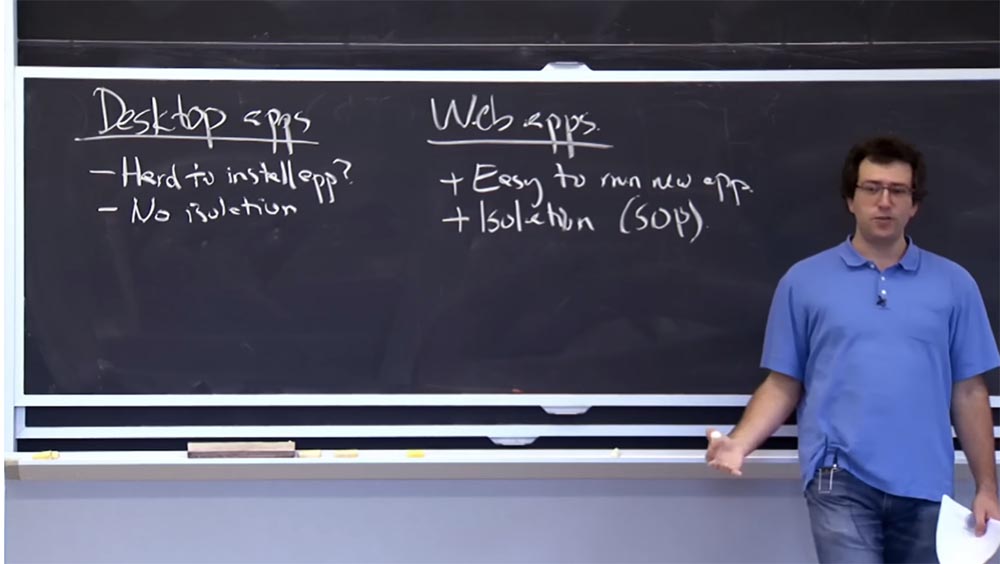 Desktop apps
- Hard to install app?
- No isolation
Web apps.
+ Easy to run new app.
+ Isolation (SOP).